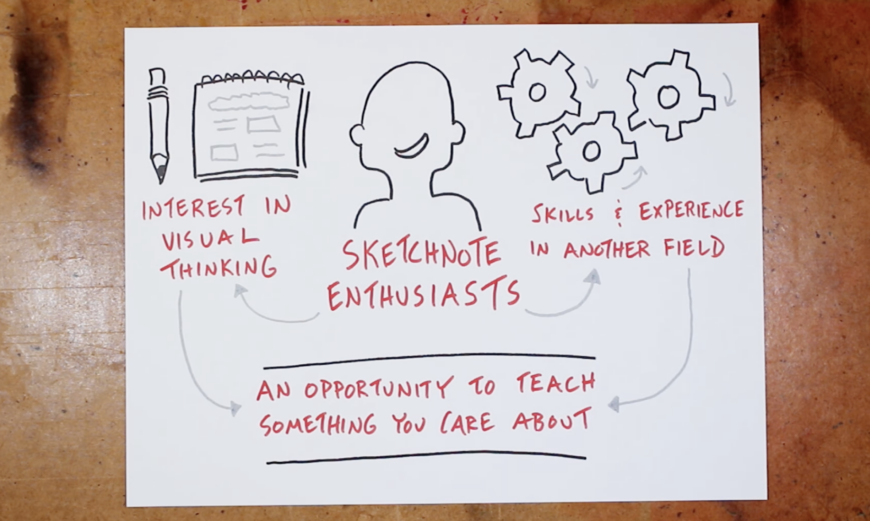 INTEREST IN
VISUAL
THINKING
SKETCHNOTE
ENTHUSIASTS
SKILLS & EXPERIENCE
IN ANOTHER FIELD
AN OPPORTUNITY TO TEACH
SOMETHING YOU CARE ABOUT